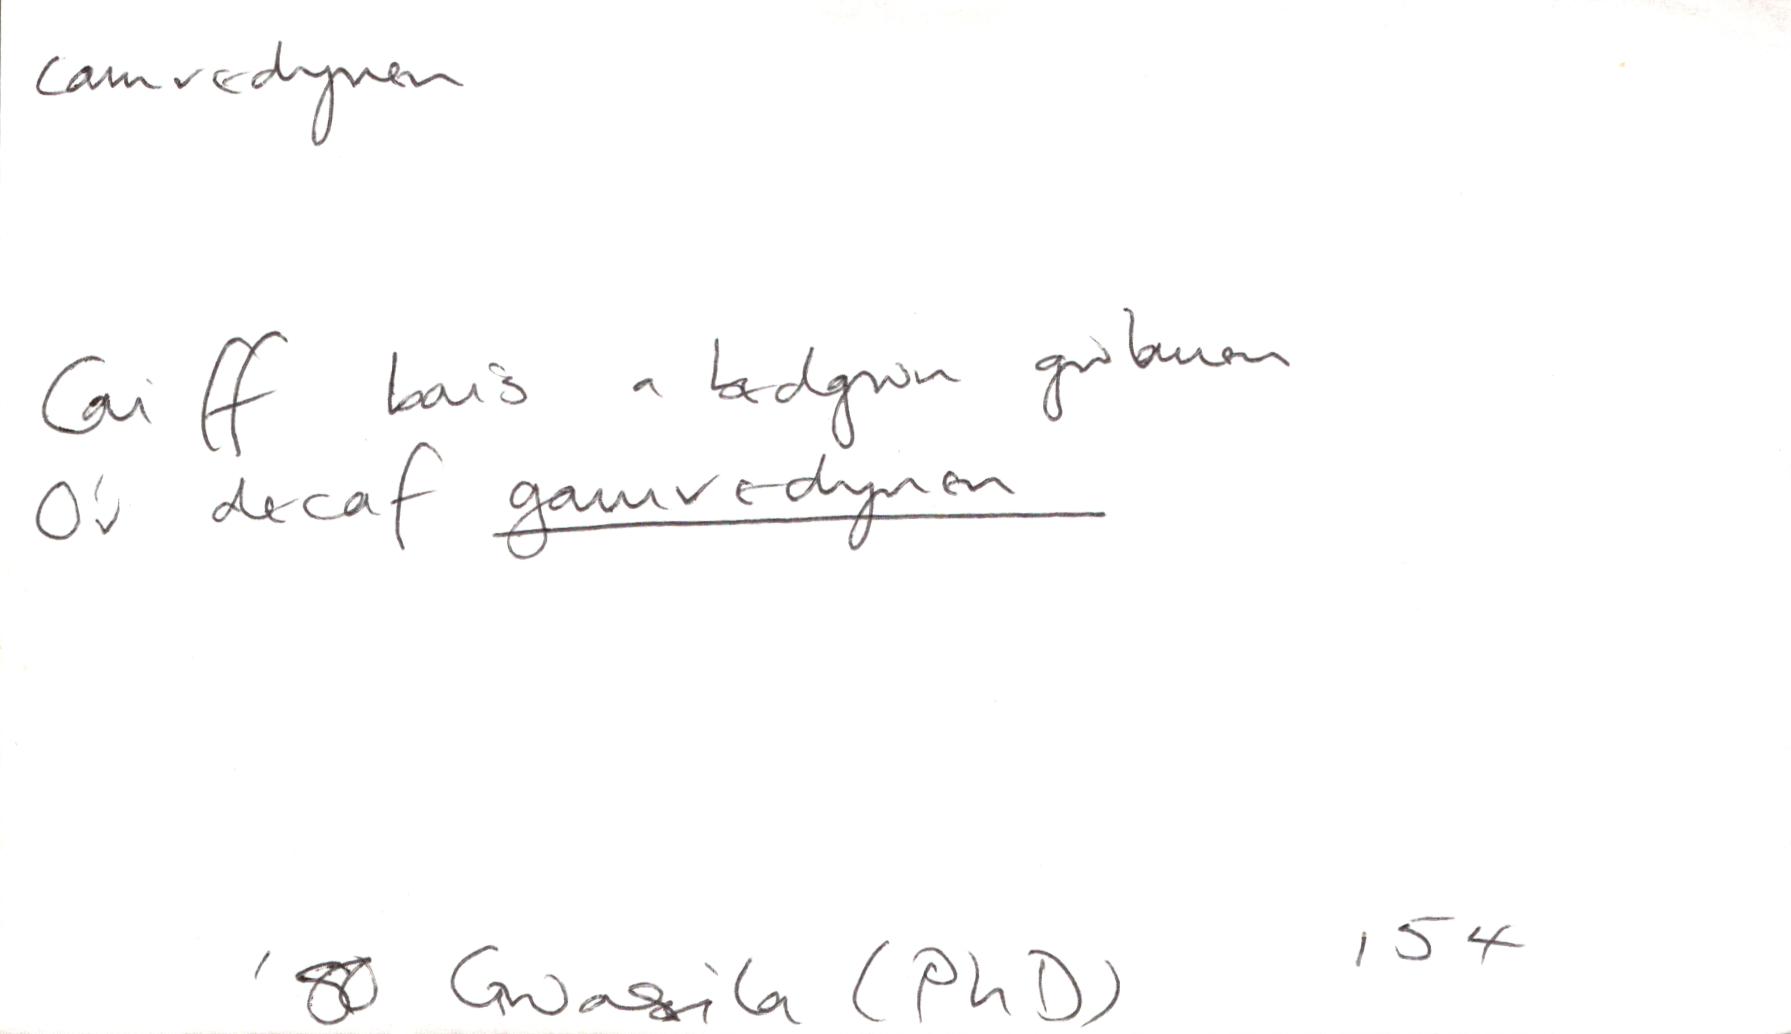 camredynen
Caiff bais a bedgwn gwlanen
O'r decaf gamredynen
'80 Gwasila (PhD) 154